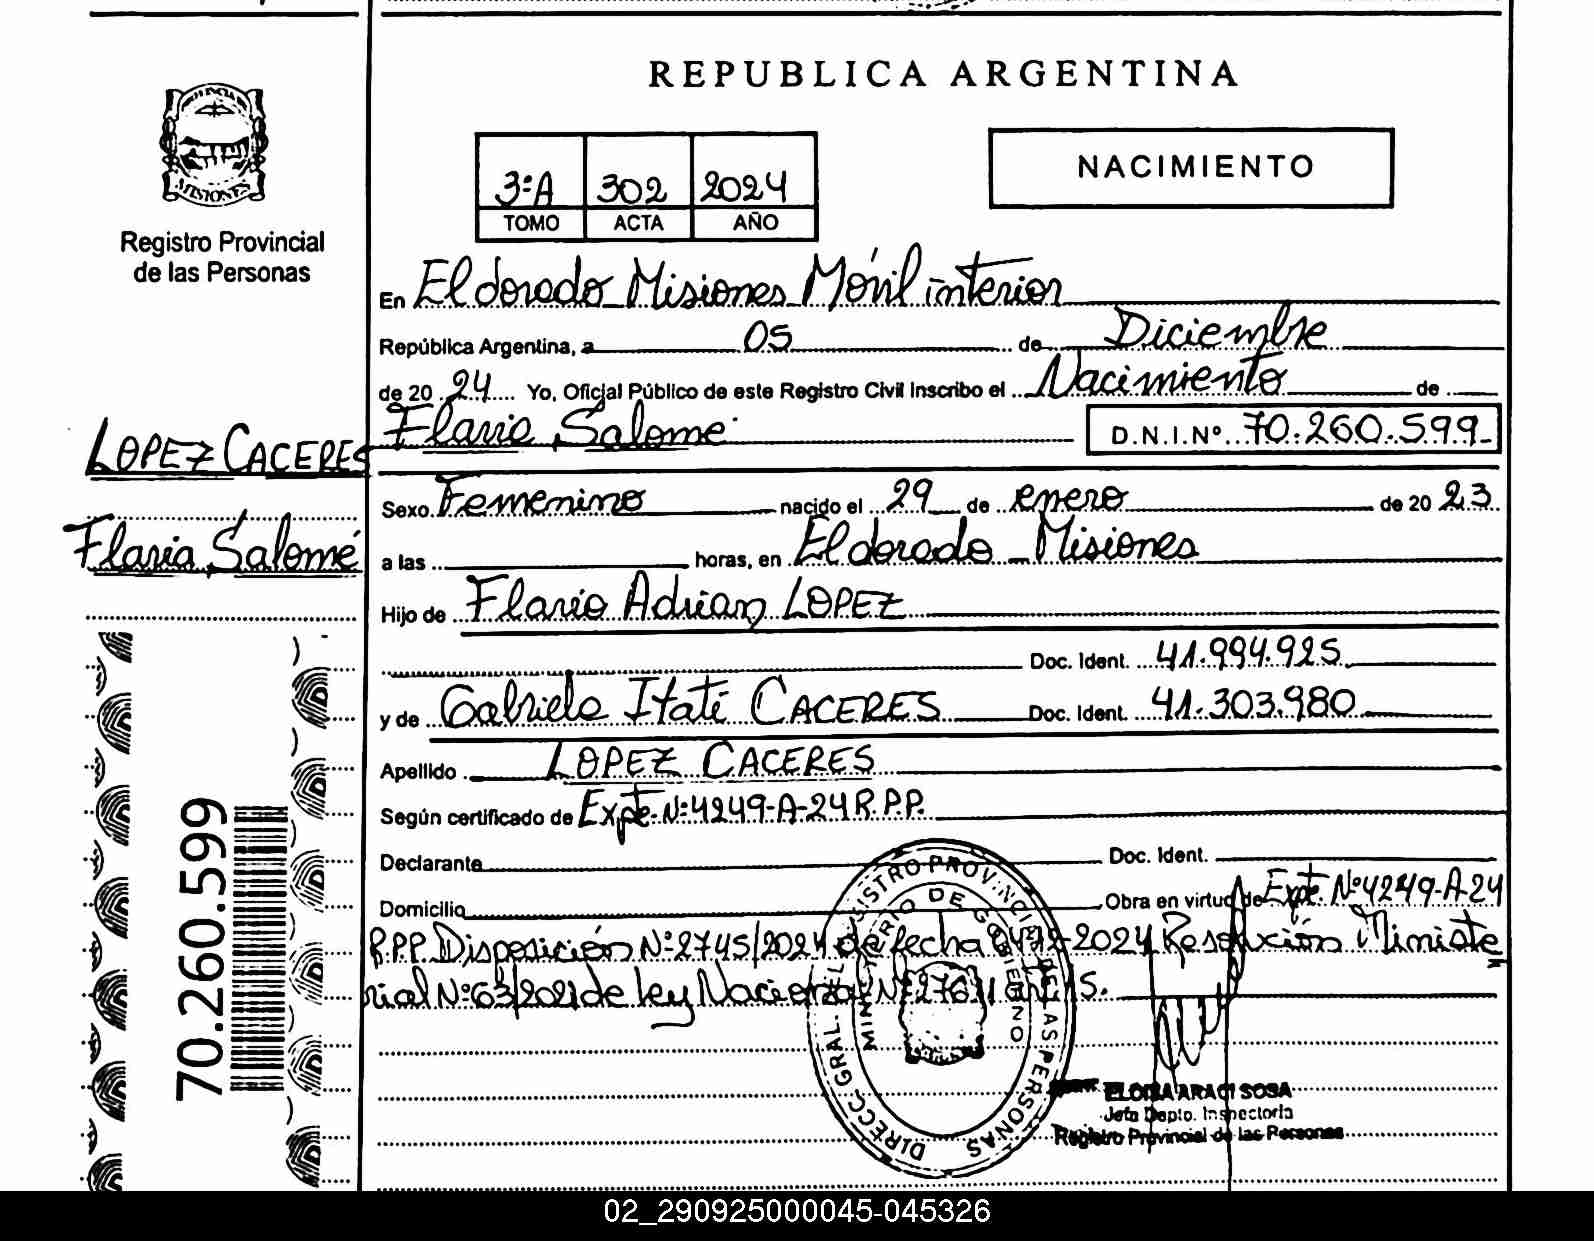 REPUBLICA ARGENTINA
PROVINCIA DE
MISIONES
Registro Provincial
de las Personas
3ºA 302 2024
TOMO ACTA AÑO
NACIMIENTO
En Eldorado Misiones Móvil interior
República Argentina, a 05 de Diciembre
de 20 24 Yo, Oficial Público de este Registro Civil Inscribo el Nacimiento de
Flavia Salomé D.N.I.Nº 70.260.599
LOPEZ CACERES
Flavia Salomé
Sexo Femenino nacido el 29 de enero de 20 23
a las horas, en Eldorado Misiones
Hijo de Flavio Adrian LOPEZ
Doc. Ident. 41.994.925
y de Gabriela Itatí CACERES Doc. Ident. 41.303.980
Apellido LOPEZ CACERES
Según certificado de Expte. Nº 4249-A-24 R.P.P.
Declarante Doc. Ident.
Domicilio Obra en virtud de Expte. Nº 4249-A-24
R.P.P. Disposición Nº 2745/2024 de fecha 2024 Resolución Ministe
rial Nº 63/2021 de ley Nacional Nº 27611
DIRECC. GRAL. DEL REGISTRO PROVINCIAL DE LAS PERSONAS
MINISTERIO DE GOBIERNO
ELOISA ARACI SOSA
Jefa Depto. Inspectoría
Registro Provincial de las Personas
70.260.599
02_290925000045-045326